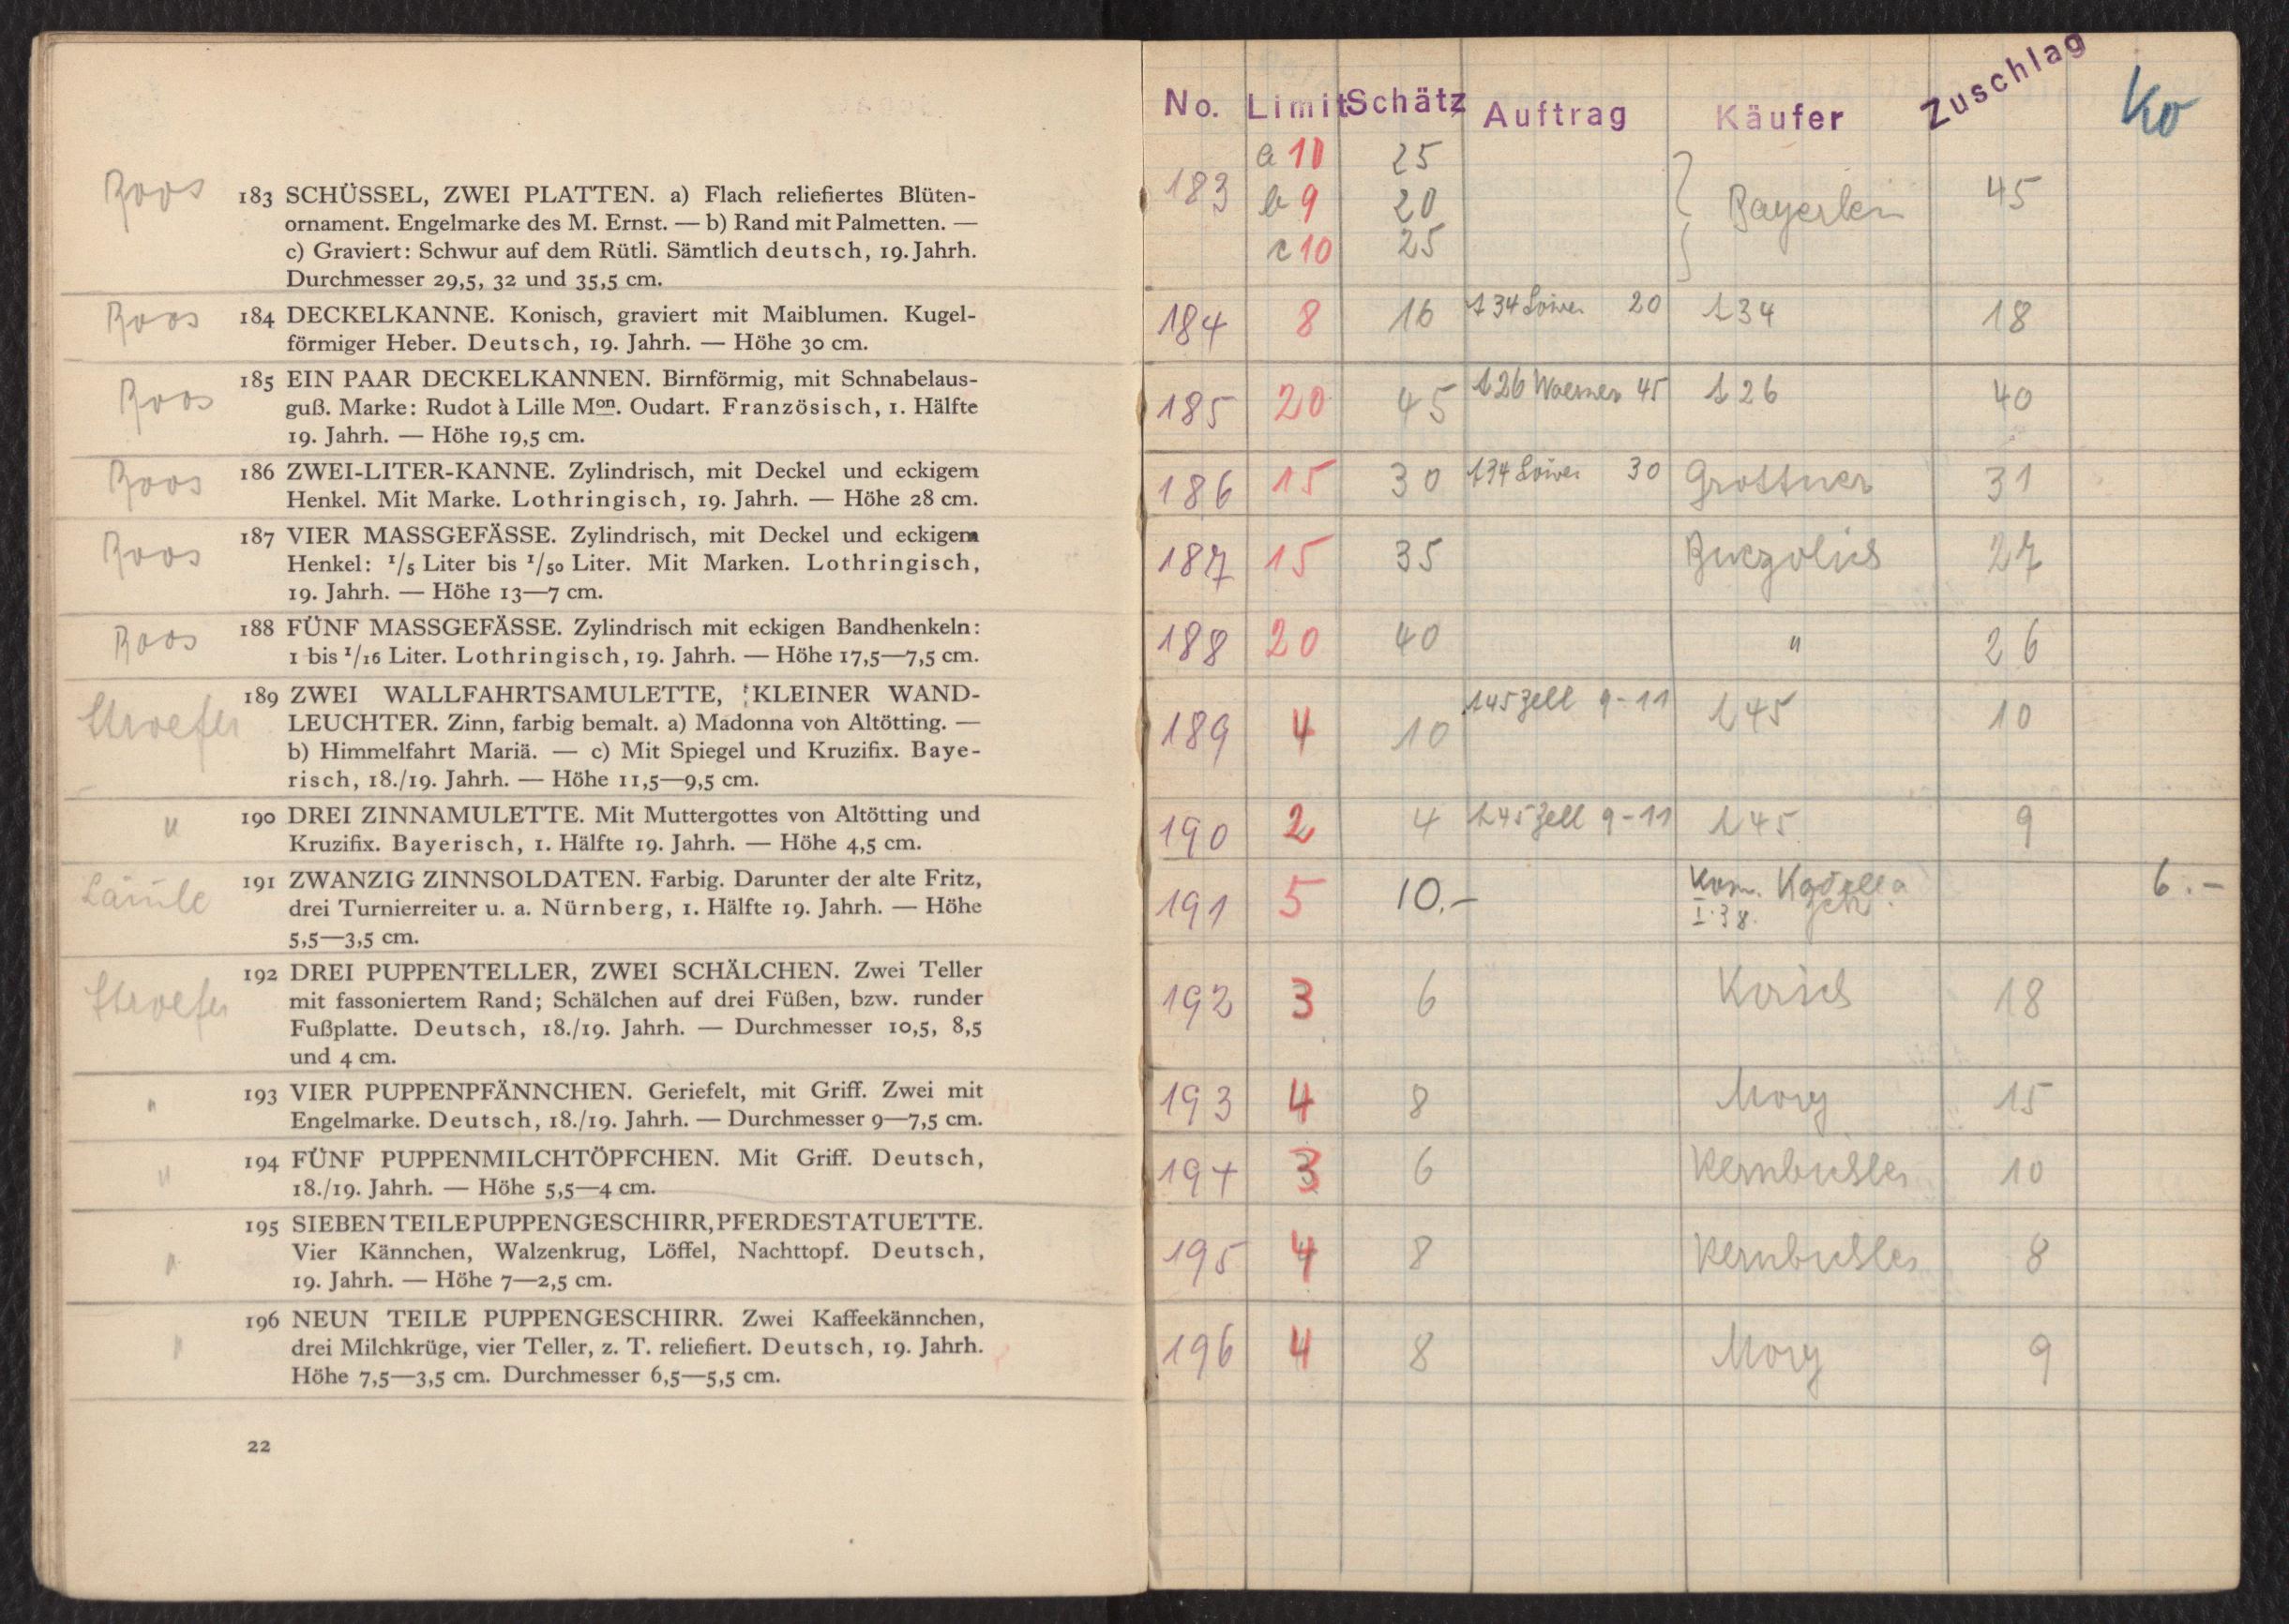 Roos
183 SCHÜSSEL, ZWEI PLATTEN. a) Flach reliefiertes Blüten-
ornament. Engelmarke des M. Ernst. — b) Rand mit Palmetten. —
c) Graviert: Schwur auf dem Rütli. Sämtlich deutsch, 19. Jahrh.
Durchmesser 29,5, 32 und 35,5 cm.
Roos
184 DECKELKANNE. Konisch, graviert mit Maiblumen. Kugel-
förmiger Heber. Deutsch, 19. Jahrh. — Höhe 30 cm.
Roos
185 EIN PAAR DECKELKANNEN. Birnförmig, mit Schnabelaus-
guß. Marke: Rudot à Lille Mon. Oudart. Französisch, 1. Hälfte
19. Jahrh. — Höhe 19,5 cm.
Roos
186 ZWEI-LITER-KANNE. Zylindrisch, mit Deckel und eckigem
Henkel. Mit Marke. Lothringisch, 19. Jahrh. — Höhe 28 cm.
Roos
187 VIER MASSGEFÄSSE. Zylindrisch, mit Deckel und eckigem
Henkel: 1/5 Liter bis 1/50 Liter. Mit Marken. Lothringisch,
19. Jahrh. — Höhe 13—7 cm.
Roos
188 FÜNF MASSGEFÄSSE. Zylindrisch mit eckigen Bandhenkeln:
1 bis 1/16 Liter. Lothringisch, 19. Jahrh. — Höhe 17,5—7,5 cm.
Stroefer
189 ZWEI WALLFAHRTSAMULETTE, KLEINER WAND-
LEUCHTER. Zinn, farbig bemalt. a) Madonna von Altötting. —
b) Himmelfahrt Mariä. — c) Mit Spiegel und Kruzifix. Baye-
risch, 18./19. Jahrh. — Höhe 11,5—9,5 cm.
"
190 DREI ZINNAMULETTE. Mit Muttergottes von Altötting und
Kruzifix. Bayerisch, 1. Hälfte 19. Jahrh. — Höhe 4,5 cm.
Läule
191 ZWANZIG ZINNSOLDATEN. Farbig. Darunter der alte Fritz,
drei Turnierreiter u. a. Nürnberg, 1. Hälfte 19. Jahrh. — Höhe
5,5—3,5 cm.
Stroefer
192 DREI PUPPENTELLER, ZWEI SCHÄLCHEN. Zwei Teller
mit fassoniertem Rand; Schälchen auf drei Füßen, bzw. runder
Fußplatte. Deutsch, 18./19. Jahrh. — Durchmesser 10,5, 8,5
und 4 cm.
"
193 VIER PUPPENPFÄNNCHEN. Geriefelt, mit Griff. Zwei mit
Engelmarke. Deutsch, 18./19. Jahrh. — Durchmesser 9—7,5 cm.
"
194 FÜNF PUPPENMILCHTÖPFCHEN. Mit Griff. Deutsch,
18./19. Jahrh. — Höhe 5,5—4 cm.
"
195 SIEBEN TEILE PUPPENGESCHIRR, PFERDESTATUETTE.
Vier Kännchen, Walzenkrug, Löffel, Nachttopf. Deutsch,
19. Jahrh. — Höhe 7—2,5 cm.
"
196 NEUN TEILE PUPPENGESCHIRR. Zwei Kaffeekännchen,
drei Milchkrüge, vier Teller, z. T. reliefiert. Deutsch, 19. Jahrh.
Höhe 7,5—3,5 cm. Durchmesser 6,5—5,5 cm.
22
No. Limit Schätz Auftrag Käufer Zuschlag Ko
a 10 25
183 b 9 20 Bayerlein 45
c 10 25
184 8 16 134 20 134 18
185 20 45 126 45 126 40
186 15 30 134 30 Grottner 31
187 15 35 27
188 20 40 " 26
189 4 10 145 Zell 9-11 145 10
190 2 4 145 Zell 9-11 145 9
191 5 10.- Kom. 6.-
I.38.
192 3 6 Korsch 18
193 4 8 Mory 15
194 3 6 10
195 4 8 8
196 4 8 Mory 9